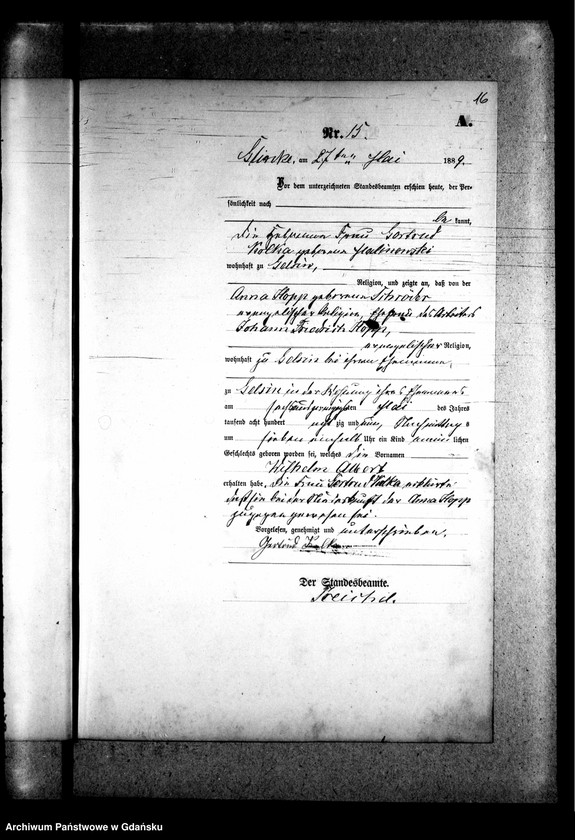 16
A.
Nr. 15.
am 27ten Mai 1889.
Vor dem unterzeichneten Standesbeamten erschien heute, der Per-
sönlichkeit nach
be kannt,
die Frau Gertrud
Kolka geborene Malinowski
wohnhaft zu Gelsin,
Religion, und zeigte an, daß von der
Anna Stopp geborenen Schröder
evangelischer Religion, Ehefrau des Arbeiters
Johann Friedrich Stopp,
evangelischer Religion,
wohnhaft zu Gelsin bei ihrem Ehemanne,
zu Gelsin in der Wohnung ihres Ehemannes
am ten Mai des Jahres
tausend acht hundert acht zig und neun, Nachmittags
um sieben einhalb Uhr ein Kind männ lichen
Geschlechts geboren worden sei, welches die Vornamen
Wilhelm Albert
erhalten habe. Die Frau Gertrud Kolka erklärte
daß sie bei der Niederkunft der Anna Stopp
zugegen gewesen sei.
Vorgelesen, genehmigt und unterschrieben.
Gertrud Kolka
Der Standesbeamte.
Archiwum Państwowe w Gdańsku